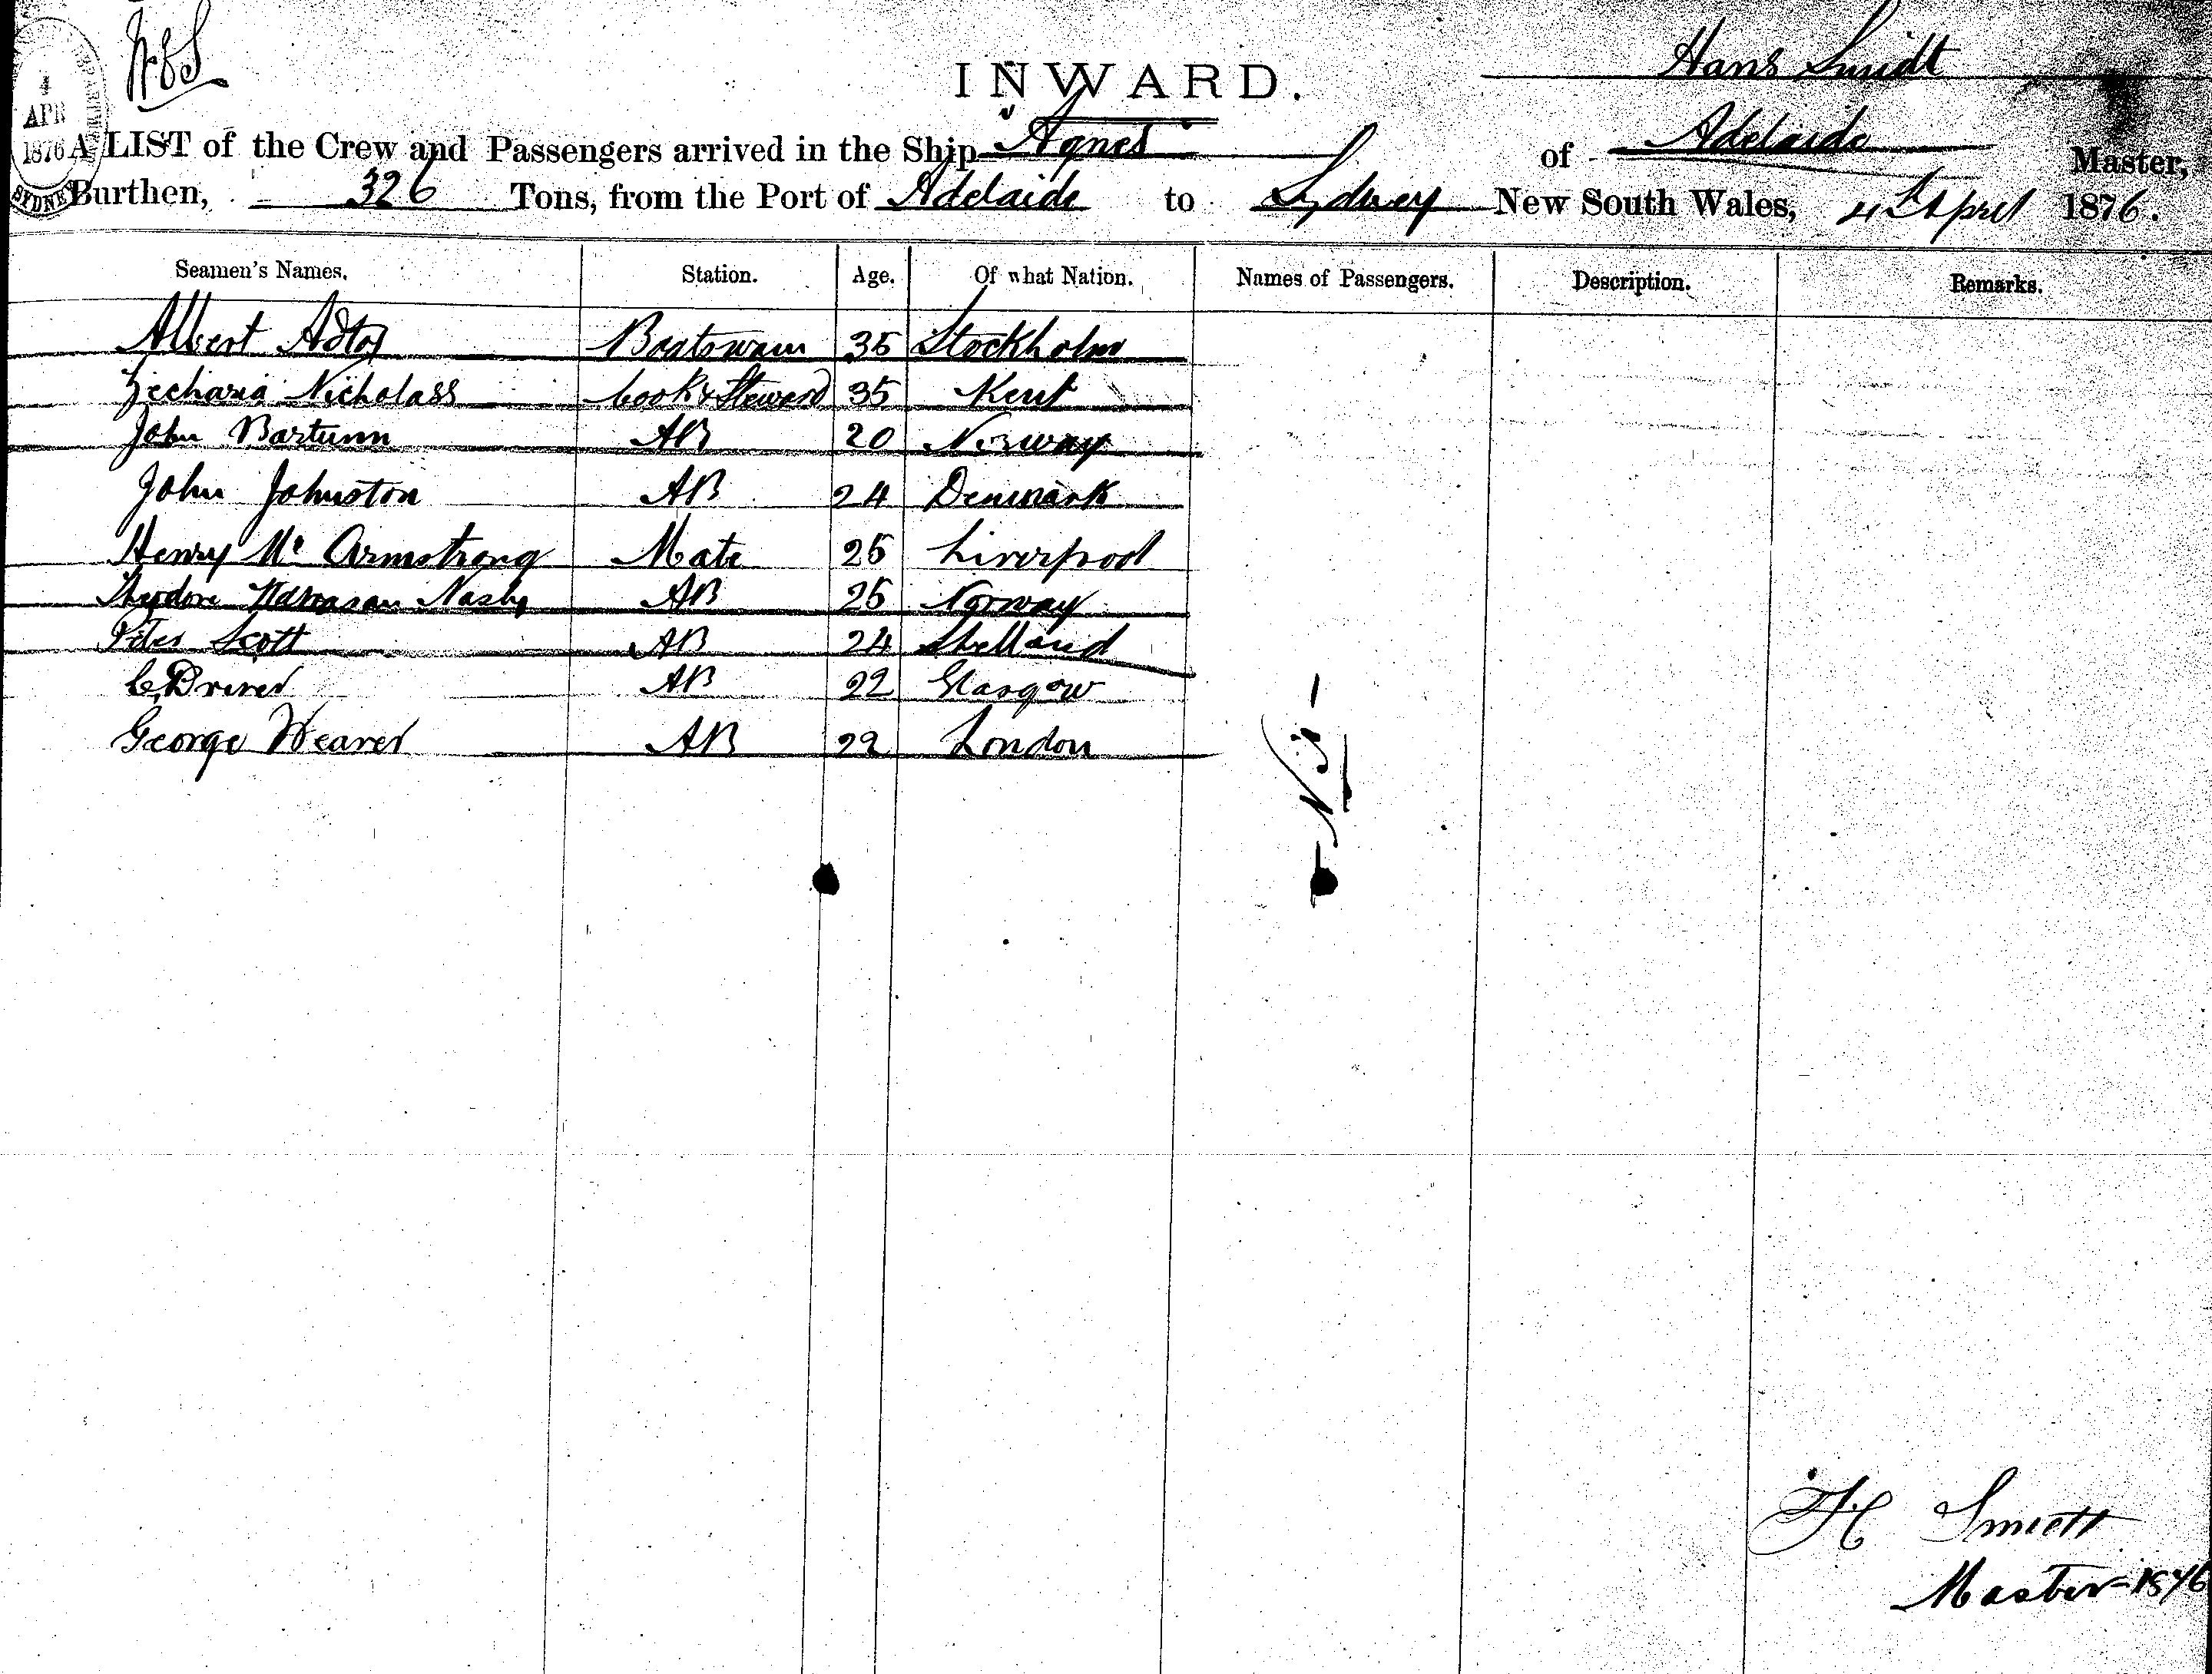 4
APR
1876
SYDNEY
INWARD.
Hans Smidt
A LIST of the Crew and Passengers arrived in the Ship "Agnes" of Adelaide Master,
Burthen, 326 Tons, from the Port of Adelaide to Sydney New South Wales, 4 April 1876.
Seamen's Names. Station. Age. Of what Nation. Names of Passengers. Description. Remarks.
Albert Boatswain 35 Stockholm
Zecharia Nicholass Cook & Steward 35 Kent
John Bartunn AB 20 Norway
John Johnston AB 24 Denmark
Henry Mc Armstrong Mate 25 Liverpool
Theodore Nashy AB 25 Norway
Peter Scott AB 24 Shetland
C. Driver AB 22 Glasgow
George Weaver AB 22 London
- Nil -
H Smidt
Master